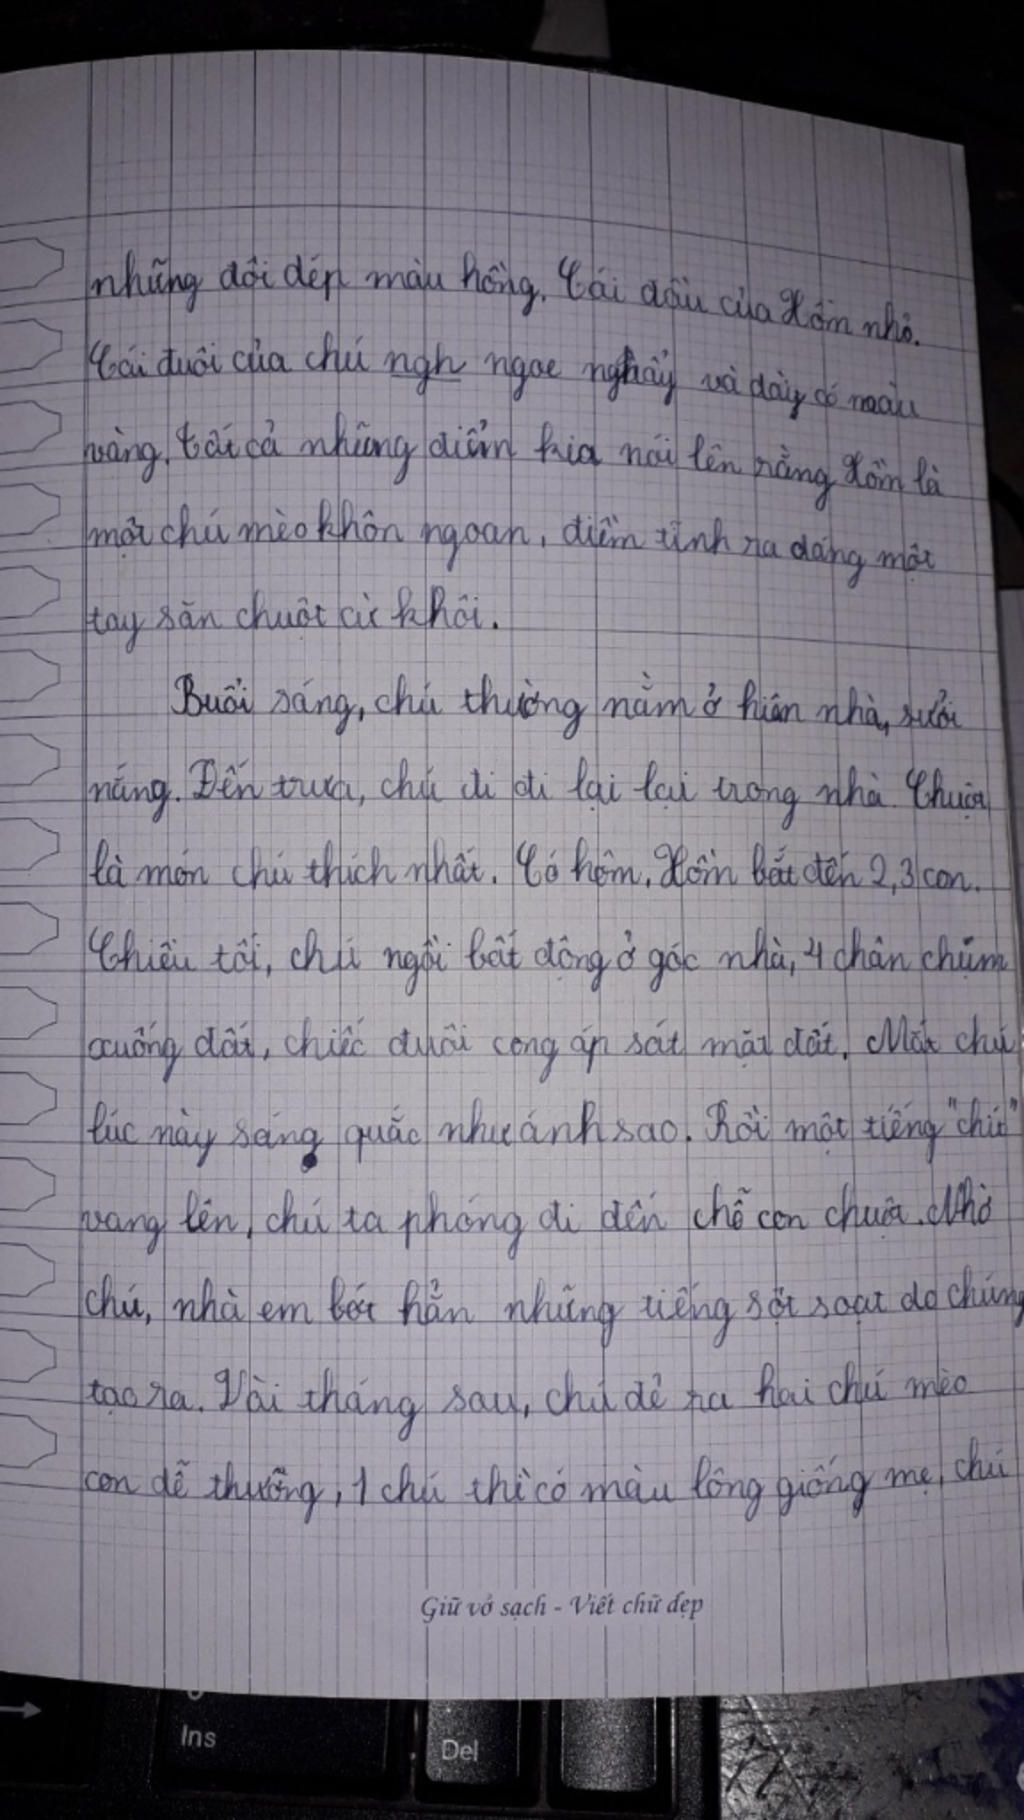 những đôi dép màu hồng. Cái đầu của Xồm nhỏ.
Cái đuôi của chú ngh ngoe nghẩy và dày có màu
vàng. tất cả những điểm kia nói lên rằng Xồm là
một chú mèo khôn ngoan, điềm tĩnh ra dáng một
tay săn chuột cừ khôi.
Buổi sáng, chú thường nằm ở hiên nhà, sưởi
nắng. Đến trưa, chú đi đi lại lại trong nhà. Chuột
là món chú thích nhất. Có hôm, Xồm bắt đến 2, 3 con.
Chiều tối, chú ngồi bất động ở góc nhà, 4 chân chúm
xuống đất, chiếc đuôi cong áp sát mặt đất. Mắt chú
lúc này sáng quắc như ánh sao. Rồi một tiếng "chít"
vang lên, chú ta phóng đi đến chỗ con chuột. Nhờ
chú, nhà em bớt hẳn những tiếng sột soạt do chúng
tạo ra. Vài tháng sau, chú đẻ ra hai chú mèo
con dễ thưỡng, 1 chú thì có màu lông giống mẹ, chú
Giữ vở sạch - Viết chữ đẹp
Ins
Del